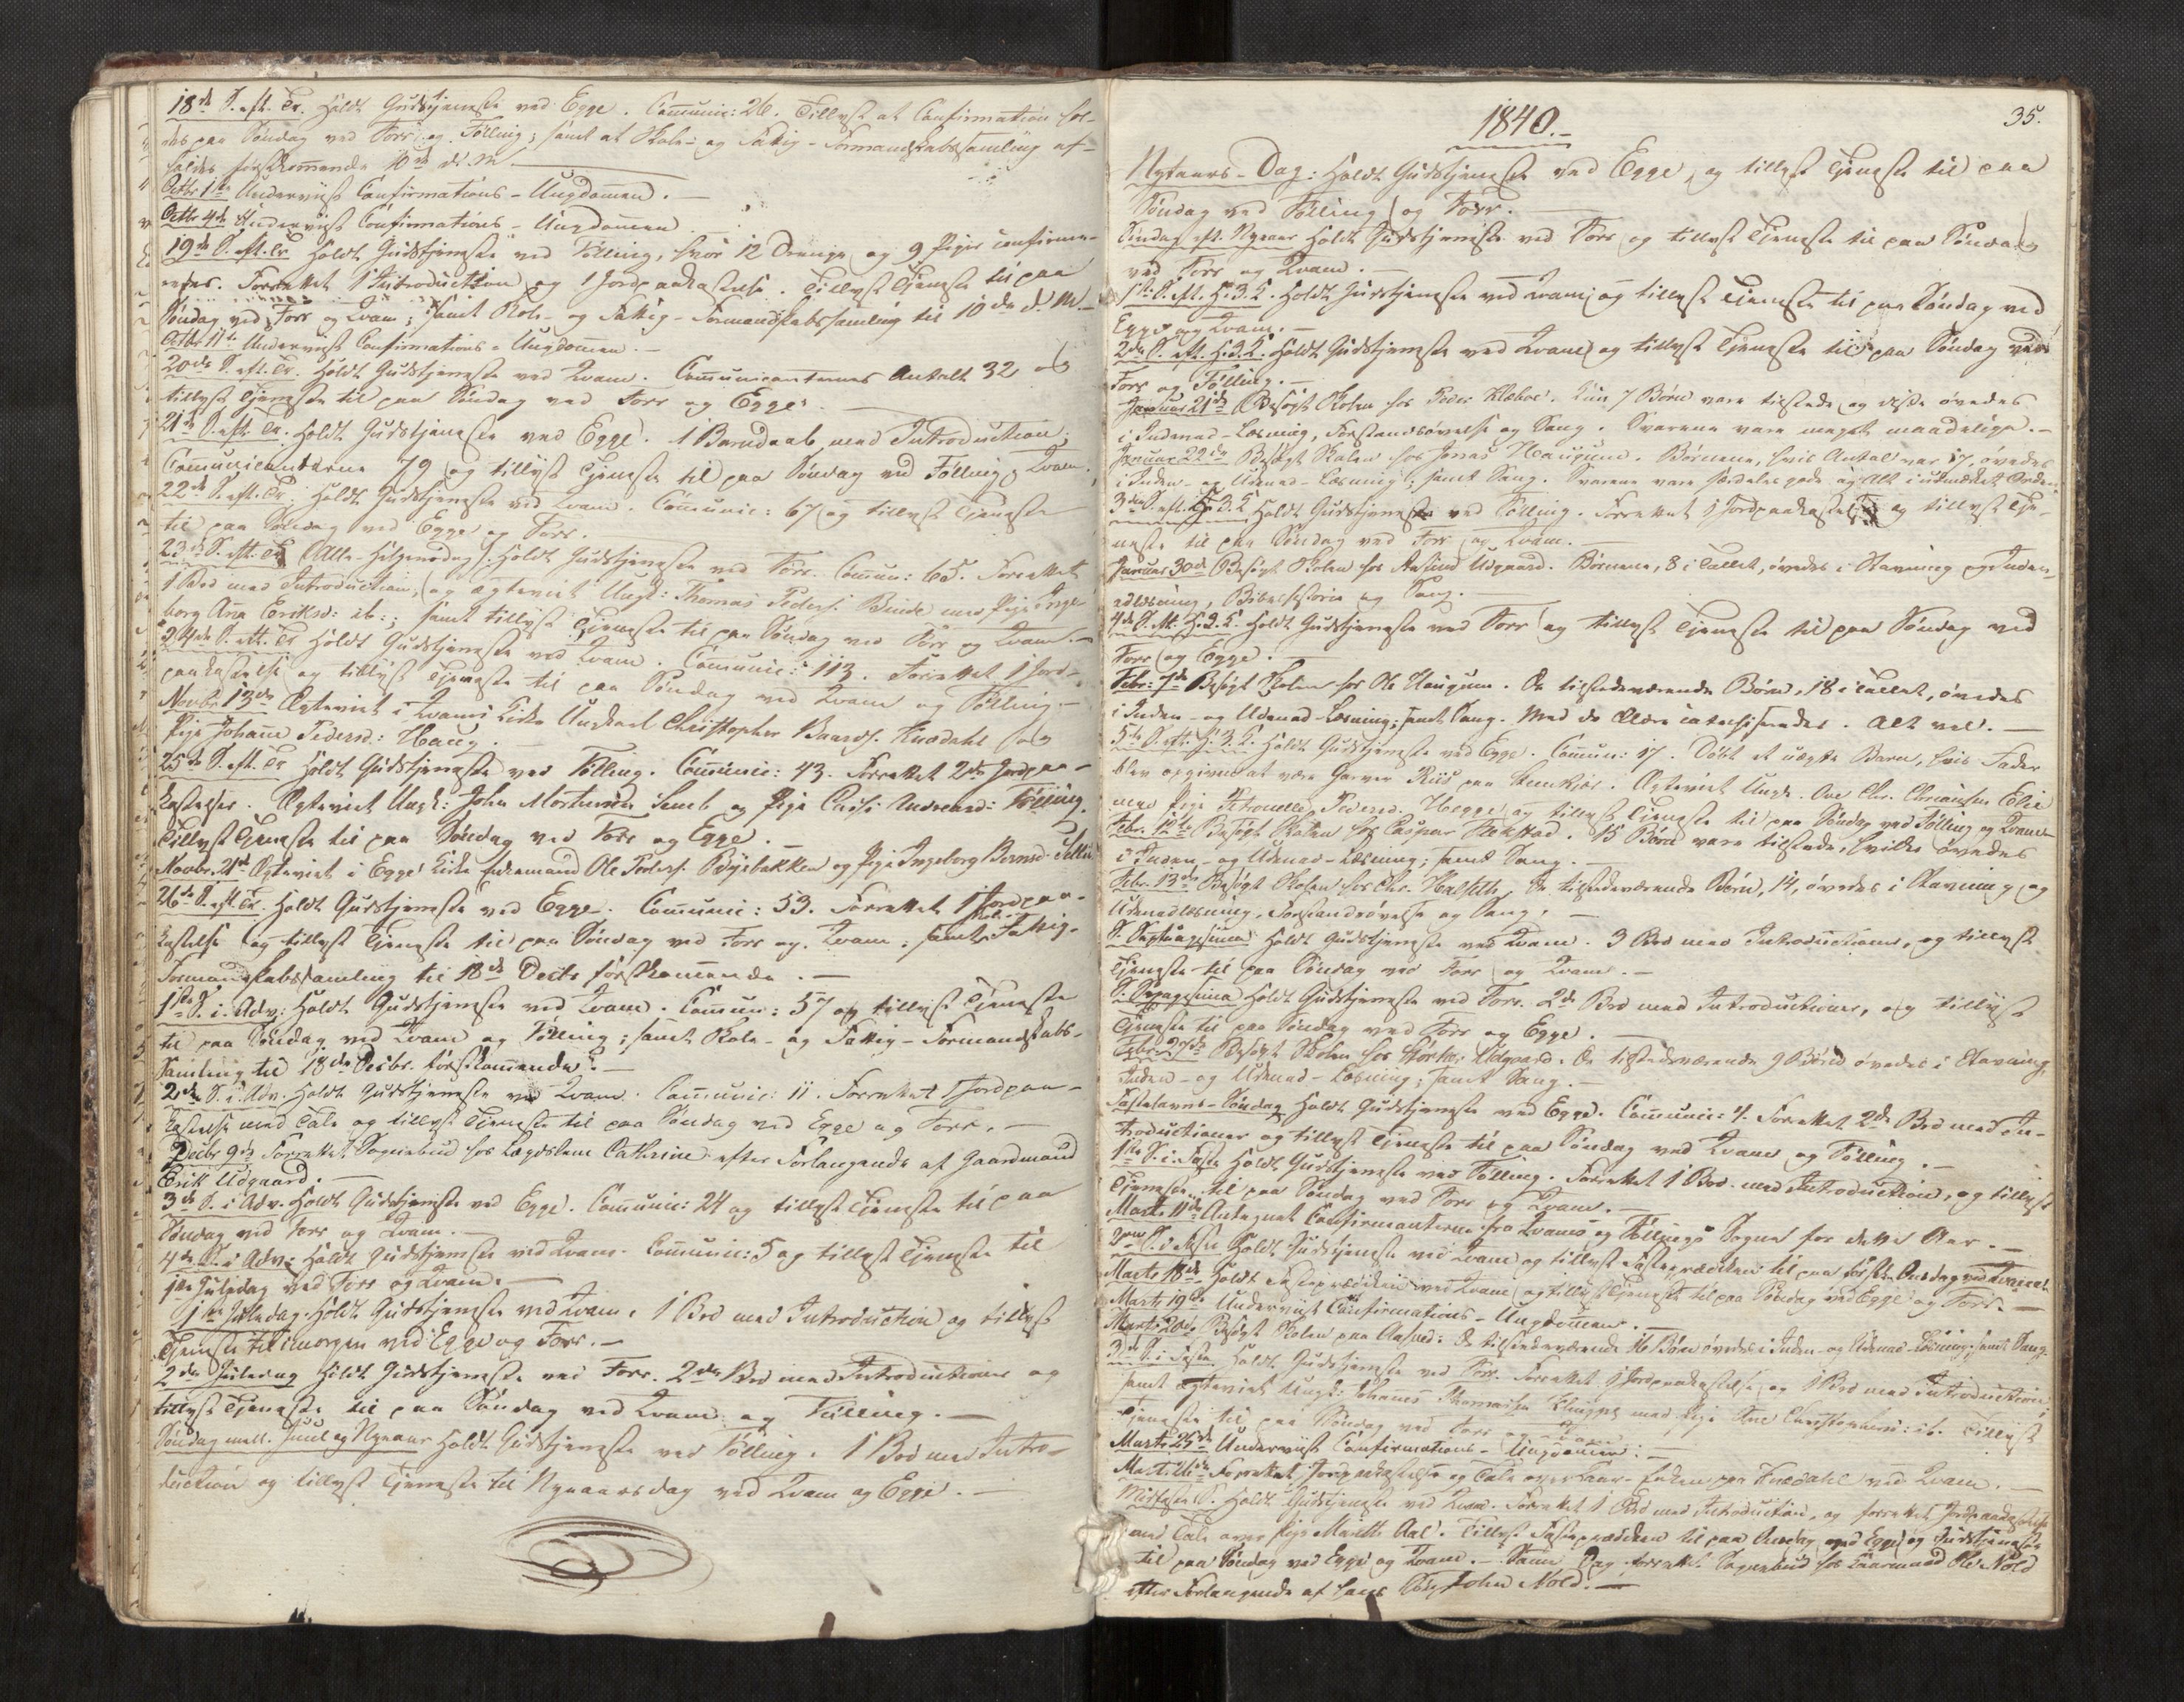 18de S. eft. Tr. Holdt Gudstjeneste ved Egge. Communic: 26. Tillyst at Confirmation hol-
des paa Søndag ved Fosr og Følling; samt at Skole- og Fattig-Formandskabssamling af-
holdes førstkommende 10de ds. M.
Octbr 1ste Underviist Confirmations-Ungdommen.
Octbr 4de Underviist Confirmations-Ungdommen
19de S. eft. Tr. Holdt Gudstjeneste ved Følling, hvor 12 Drenge og 9 Piger confirme-
redes. Forrettet 1 Introduction og 1 Jordpaakastelse. Tillyst Tjeneste til paa
Søndag ved Forr og Qvam; samt Skole- og Fattig-Formandskabssamling til 10de d. M.
Octbr 11te Underviist Confirmations-Ungdommen.
20de S. eft. Tr. Holdt Gudstjeneste ved Qvam. Communicanternes Antall 32 og
tillyst Tjeneste til paa Søndag ved Forr og Egge.
21de S. eft. Tr. Holdt Gudstjeneste ved Egge. 1 Barnedaab med Introduction;
Communicanterne 79 og tillyst Tjeneste til paa Søndag ved Følling og Qvam.
22de S. eft. Tr. Holdt Gudstjeneste ved Qvam. Communic: 67 og tillyst Tjeneste
til paa Søndag ved Egge og Forr.
23de S. eft. Tr. (Alle-Helgensdag) Holdt Gudstjeneste ved Forr. Commun: 65. Forrettet
1 Brd med Introduction, og ægteviet Ungk: Thomas Peders. Binde med Pige Inge-
borg Ana Eriksd: ib:; samt tillyst Tjeneste til paa Søndag ved Forr og Qvam.
24de S. eft. Tr Holdt Gudstjeneste ved Qvam. Communic: 113. Forrettet 1 Jord-
paakastelse og tillyst Tjeneste til paa Søndag ved Qvam og Følling.
Novbr 13de Ægteviet i Qvams Kirke Ungkarl Christopher Baards. Husdahl og
Pige Johanne Pedersd: Haug.
25de S. eft. Tr Holdt Gudstjeneste ved Følling. Communic: 43. Forrettet 2de Jordpaa-
kastelser. Ægteviet Ungk: John Mortensen Semb og Pige Andreasd: Følling.
Tillyst Tjeneste til paa Søndag ved Forr og Egge.
Novbr. 21de Ægteviet i Egge Kirke Enkemand Ole Peders. Byebakken og Pige Ingeborg Berntsd.
26de S. eft. Tr. Holdt Gudstjeneste ved Egge. Communic: 53. Forrettet 1 Jordpaa-
kastelse og tillyst Tjeneste til paa Søndag ved Forr og Qvam; samt Skole- Fattig-
Formandskabssamling til 18de Decbr førstkommende.
1ste S. i. Adv: Holdt Gudstjeneste ved Qvam. Commun: 57 og tillyst Tjeneste
til paa Søndag ved Qvam og Følling; samt Skole- og Fattig-Formandskabs-
Samling til 18de Decbr. førstkommende.
2de S. i Adv. Holdt Gudstjeneste ved Qvam. Communic: 11. Forrettet 1 Jordpaa-
kastelse med Tale og tillyst Tjeneste til paa Søndag ved Egge og Forr.
Decbr 9de Forrettet Sognebud hos Lægdslem Cathrine efter Forlangende af Gaardmand
Erik Udgaard.
3de S. i Adv. Holdt Gudstjeneste ved Egge. Communic: 24 og tillyst Tjeneste til paa
Søndag ved Forr og Qvam.
4de S. i Adv: Holdt Gudstjeneste ved Qvam. Communic: 5 og tillyst Tjeneste til
1ste Juledag ved Forr og Qvam.
1ste Juledag. Holdt Gudstjeneste ved Qvam. 1 Brd med Introduction og tillyst
Tjeneste til imorgen ved Egge og Forr.
2den Juledag Holdt Gudstjeneste ved Forr. 2de Brd med Introductioner og
tillyst Tjeneste til paa Søndag ved Qvam og Følling.
Søndag mell. Juul og Nyaar Holdt Gudstjeneste ved Følling. 1 Brd med Intro-
duction og tillyst Tjeneste til Nyaarsdag ved Qvam og Egge.
1840.
35.
Nytaars-Dag: Holdt Gudstjeneste ved Egge, og tillyst Tjeneste til paa
Søndag ved Følling og Forr.
Søndag eft. Nyaar Holdt Gudstjeneste ved Forr og tillyst Tjeneste til paa Søndag
ved Forr og Qvam.
1ste S. eft. H. 3. K. Holdt Gudstjeneste ved Qvam, og tillyst Tjeneste til paa Søndag ved
Egge og Qvam.
2den S. eft. H. 3. K. Holdt Gudstjeneste ved Qvam og tillyst Tjeneste til paa Søndag ved
Forr og Følling.
Januar 21de Besøgt Skolen hos Peder Klæboe. Kun 7 Børn vare tilstede og disse øvedes
i Indenad-Læsning, Forstandsøvelse og Sang. Svarene vare meget maadelige.
Januar 22de Besøgt Skolen hos Jonas Haugum. Børnene, hvis Antal var 17, øvedes
i Inden- og Udenad-Læsning; samt Sang. Svarene vare særdeles gode og Alt i udmærket Orden
3die S. eft. H. 3. K Holdt Gudstjeneste ved Følling. Forrettet 1 Jordpaakastelse og tillyst Tje-
neste til paa Søndag ved Forr og Qvam.
Januar 30de Besøgt Skolen hos Udgaard. Børnene, 8 i Tallet, øvedes i Stavning og Inden-
adlæsning, Bibelhistorie og Sang.
4de S. eft. H. 3. K. Holdt Gudstjeneste ved Forr og tillyst Tjeneste til paa Søndag ved
Forr og Egge.
Febr: 7de Besøgt Skolen hos Ole Haugum. De tilstedeværende Børn, 18 i Tallet, øvedes
i Inden- og Udenad-Læsning; samt Sang. Med de Ældre catechiseredes. Alt vel.
5te S. eft. H. 3. K. Holdt Gudstjeneste ved Egge. Commun: 17. Døbt et uægte Barn, hvis Fader
blev opgiven at være Garver Riis paa Steenkjær. Ægteviet Ungk. Ove Chr. Elie
med Pige Petronelle Pedersd. Hegge og tillyst Tjeneste til paa Søndag ved Følling og Qvam
Febr. 12te Besøgt Skolen hos Caspar Fikstad. 15 Børn vare tilstede, hvilke øvedes
i Inden- og Udenad-Læsning; samt Sang.
Febr. 13de Besøgt Skolen hos Chr. Halseth. De tilstedeværende Børn, 14, øvedes i Stavning og
Udenadlæsning, Forstandsøvelse og Sang.
S. Septuagesima Holdt Gudstjeneste ved Qvam. 3 Brd med Introductioner, og tillyst
Tjeneste til paa Søndag ved Forr og Qvam.
S. Sexagesima Holdt Gudstjeneste ved Forr. 2de Brd med Introductioner, og tillyst
Tjeneste til paa Søndag ved Forr og Egge.
Febr. 27de Besøgt Skolen hos Udgaard. De tilstedeværende 9 Børn øvedes i Stavning,
Inden- og Udenad-Læsning; samt Sang.
Fastelavns-Søndag Holdt Gudstjeneste ved Egge. Communic: 4. Forrettet 2de Brd med In-
troductioner og tillyst Tjeneste til paa Søndag ved Qvam og Følling.
1ste S. i Faste Holdt Gudstjeneste ved Følling. Forrettet 1 Brd. med Introduction, og tillyst
Tjeneste til paa Søndag ved Forr og Qvam.
Marts 11te Antegnet Confirmanterne fra Qvams ogFøllings Sogne for dette Aar.
2den S. i Faste Holdt Gudstjeneste ved Qvam og tillyst Fasteprædiken til paa første Onsdag ved Qvam
Marts 18de Holdt Fasteprædiken ved Qvam og tillyst Tjeneste til paa Søndag ved Egge og Forr.
Marts 19de Underviist Confirmations-Ungdommen.
Marts 20de Besøgt Skolen paa Aasved. De tilstedeværende 16 Børn øvedes i Inden- og Udenad-Læsning; samt Sang.
3die S. i Faste Holdt Gudstjeneste ved Forr. Forrettet 1 Jordpaakastelse og 1 Brd med Introduction;
samt ægteviet Ungk: Johannes Thomassen med Pige Ane Christophersd: ib. Tillyst
Tjeneste til paa Søndag ved Forr og Qvam
Marts 25de Underviist Confirmations-Ungdommen.
Marts 26de Forrettet Jordpaakastelse og Tale over Enken paa Husdahl ved Qvam.
Midfaste S. Holdt Gudstjeneste ved Qvam. Forrettet 1 Brd med Introduction, og forrettet Jordpaakastelse
med Tale over Pige Marith Aal. Tillyst Fasteprædiken til paa Onsdag ved Egge og Gudstjeneste
til paa Søndag ved Egge og Qvam. Samme Dag forrettet Sognebud hos Gaardmand Ole Nold
efter Forlangende af hans Søn John Nold.